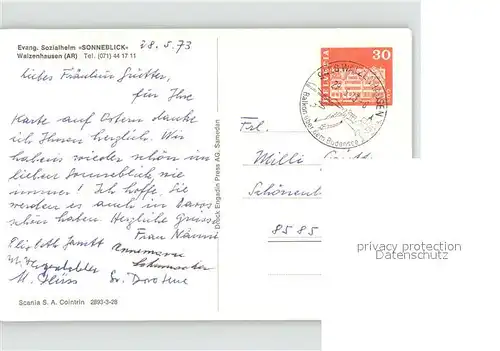 Evang. Sozialheim «SONNEBLICK»
Walzenhausen (AR) Tel. (071) 44 17 11
28.5.73
Liebes Fräulein
für Ihre
Karte auf Ostern danke
ich Ihnen herzlich. Wir
habens wieder schön im
lieben Sonneblick, wie
immer! Ich hoffe, Sie
werden es auch in Davos
schön haben. Herzliche Grüsse
Frau Nänni
Annemarie
Sr. Dorothee
M.
Scania S. A. Cointrin 2893-3-28
Druck Engadin Press AG, Samedan
HELVETIA
30
WALZENHAUSEN
Balkon über dem Bodensee
Frl.
Milli
8585
privacy protection
DATENSCHUTZ